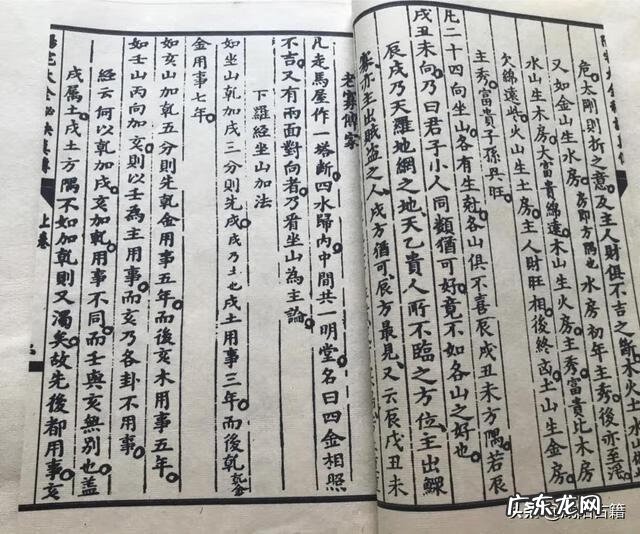 危。太剛則折之意。及主人財俱不吉之斷。木火土水
又如金山生水房。房即方隅也水房初年主秀。後亦至泥
水山生木房。大富貴綿遠。木山生火房。主秀。富貴比木房
欠綿遠些。火山生土房。主人財旺相。後終凶。土山生金房。
主秀。富貴子孫興旺。
凡二十四向坐山。各有生尅。各山俱不喜辰戌丑未方隅。若辰
戌丑未向。乃曰君子小人同類猶可好。竟不如各山之好也。
辰戌乃天羅地網之地。天乙貴人所不臨之方位。主出鰥
寡。亦主出賊盜之人。戌方猶可。辰方最見。又云辰戌丑未
老寡傳家
凡走馬屋作一塔斷。四水歸內。中間共一明堂。名曰四金相照
不吉。又有兩面對向者。乃看坐山為主論。
下羅經坐山加法
如坐山乾加戌三分。則先戌。戌乃土也戌土用事三年。而後乾。乾金
金用事七年。
如亥山加乾五分。則先乾金用事五年。而後亥木用事五年。
如壬山丙向加亥。則以壬為主用事。而亥乃各卦不用事。
經云。何以乾加戌亥加乾。用事不同。而壬與亥無別也。蓋
戌屬土。戌土方隅不如加乾。則又濁矣。故先後都用事。亥
陽宅大全秘訣真傳
上卷
广东龙网